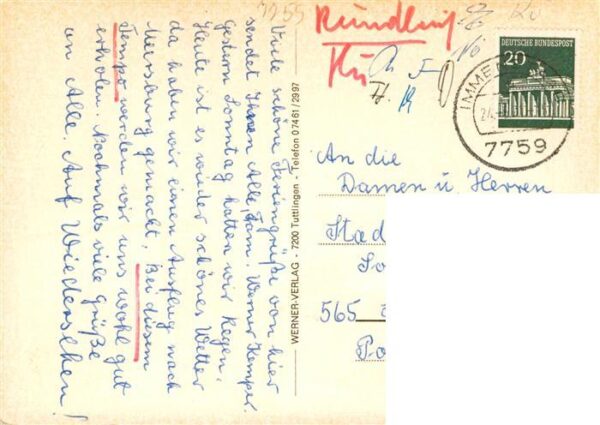 1955
Rundlauf
Ku
DEUTSCHE BUNDESPOST
20
IMME
7759
Viele schöne Feriengrüße von hier
sendet Ihnen Alle, Fam. Werner Kemper.
Gestern Sonntag hatten wir Regen,
Heute ist es wieder schönes Wetter
da haben wir einen Ausflug nach
Meersburg gemacht. Bei diesem
Tempo werden wir uns wohl gut
erholen. Nochmals viele Grüße
an Alle. Auf Wiedersehen!
WERNER-VERLAG - 7200 Tuttlingen - Telefon 07461/2997
An die
Damen u. Herren
Stad
565
Po